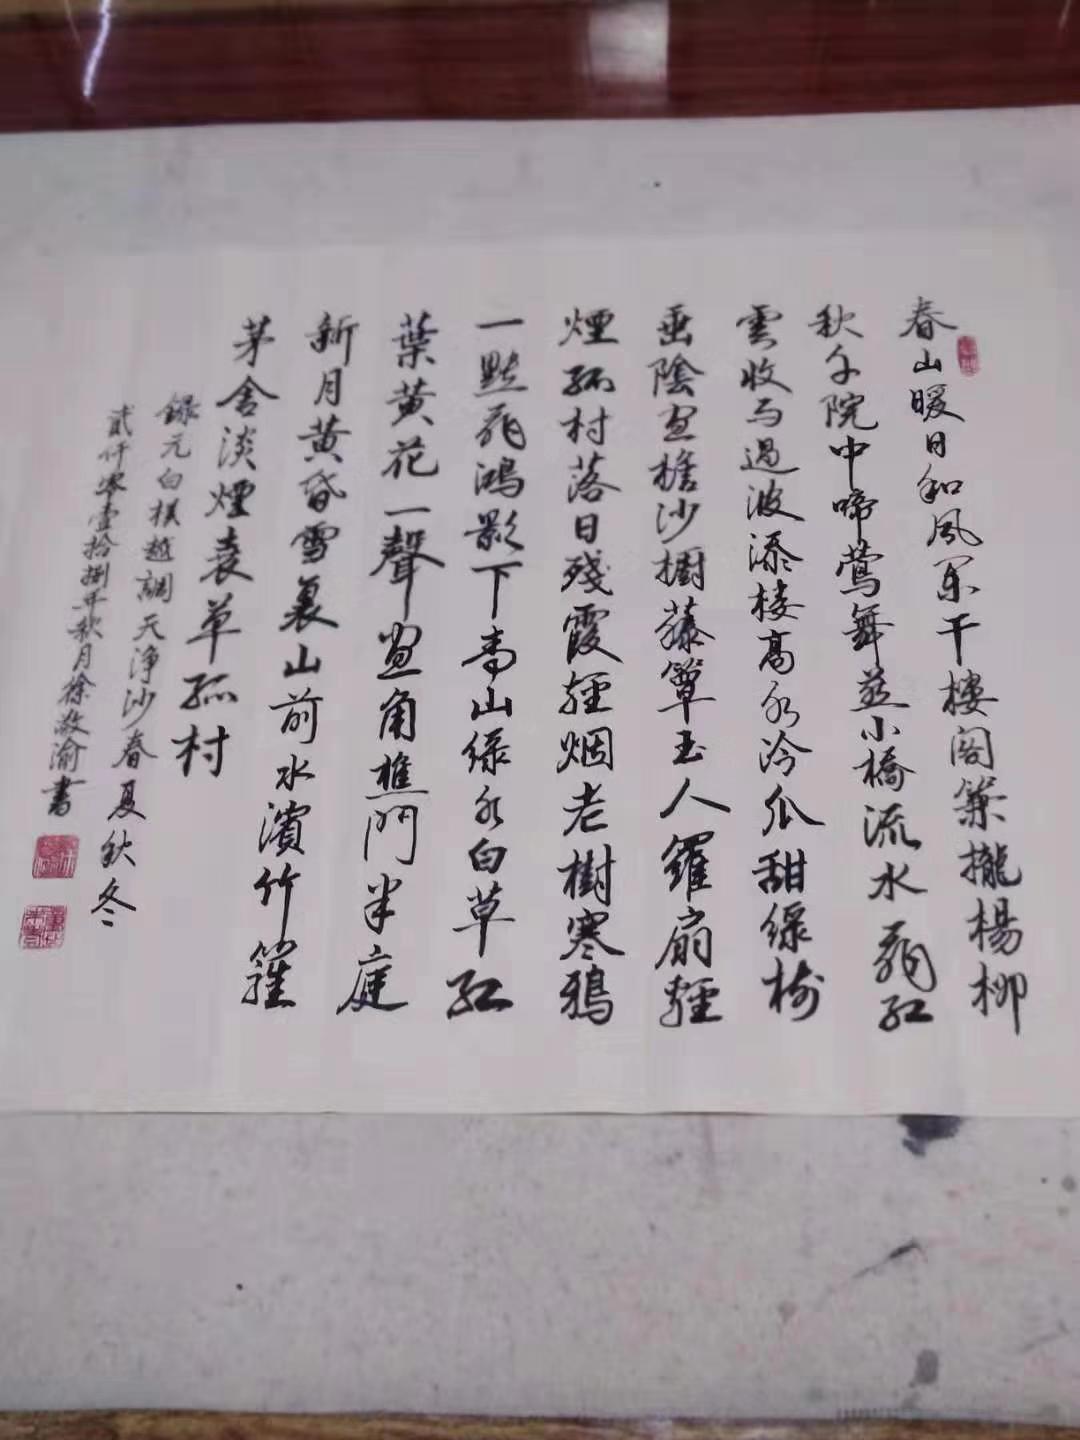 春山暖日和風闌干樓閣簾攏楊柳
秋千院中啼鶯舞燕小橋流水飛紅
雲收雨過波添樓高水冷瓜甜綠樹
垂陰畫檐沙櫥藤簟玉人羅扇輕
煙孤村落日殘霞輕烟老樹寒鴉
一點飛鴻影下青山綠水白草紅
葉黃花一聲畫角樵門半庭
新月黃昏雪裏山前水濱竹籬
茅舍淡煙衰草孤村
錄元白樸越調天淨沙春夏秋冬
貳仟零壹拾捌年秋月徐敬渝書